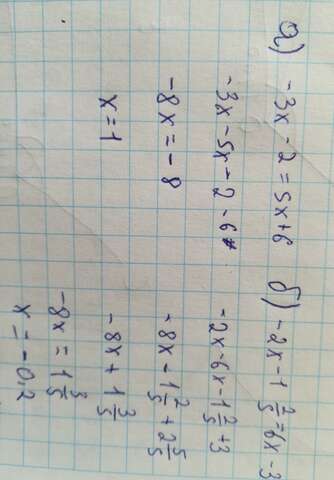 а) -3x - 2 = 5x + 6
-3x - 5x - 2 - 6
-8x = -8
x = 1
б) -2x - 1 2/5 = 6x - 3
-2x - 6x - 1 2/5 + 3
-8x - 1 2/5 + 2 5/5
-8x + 1 3/5
-8x = 1 3/5
x = -0,2